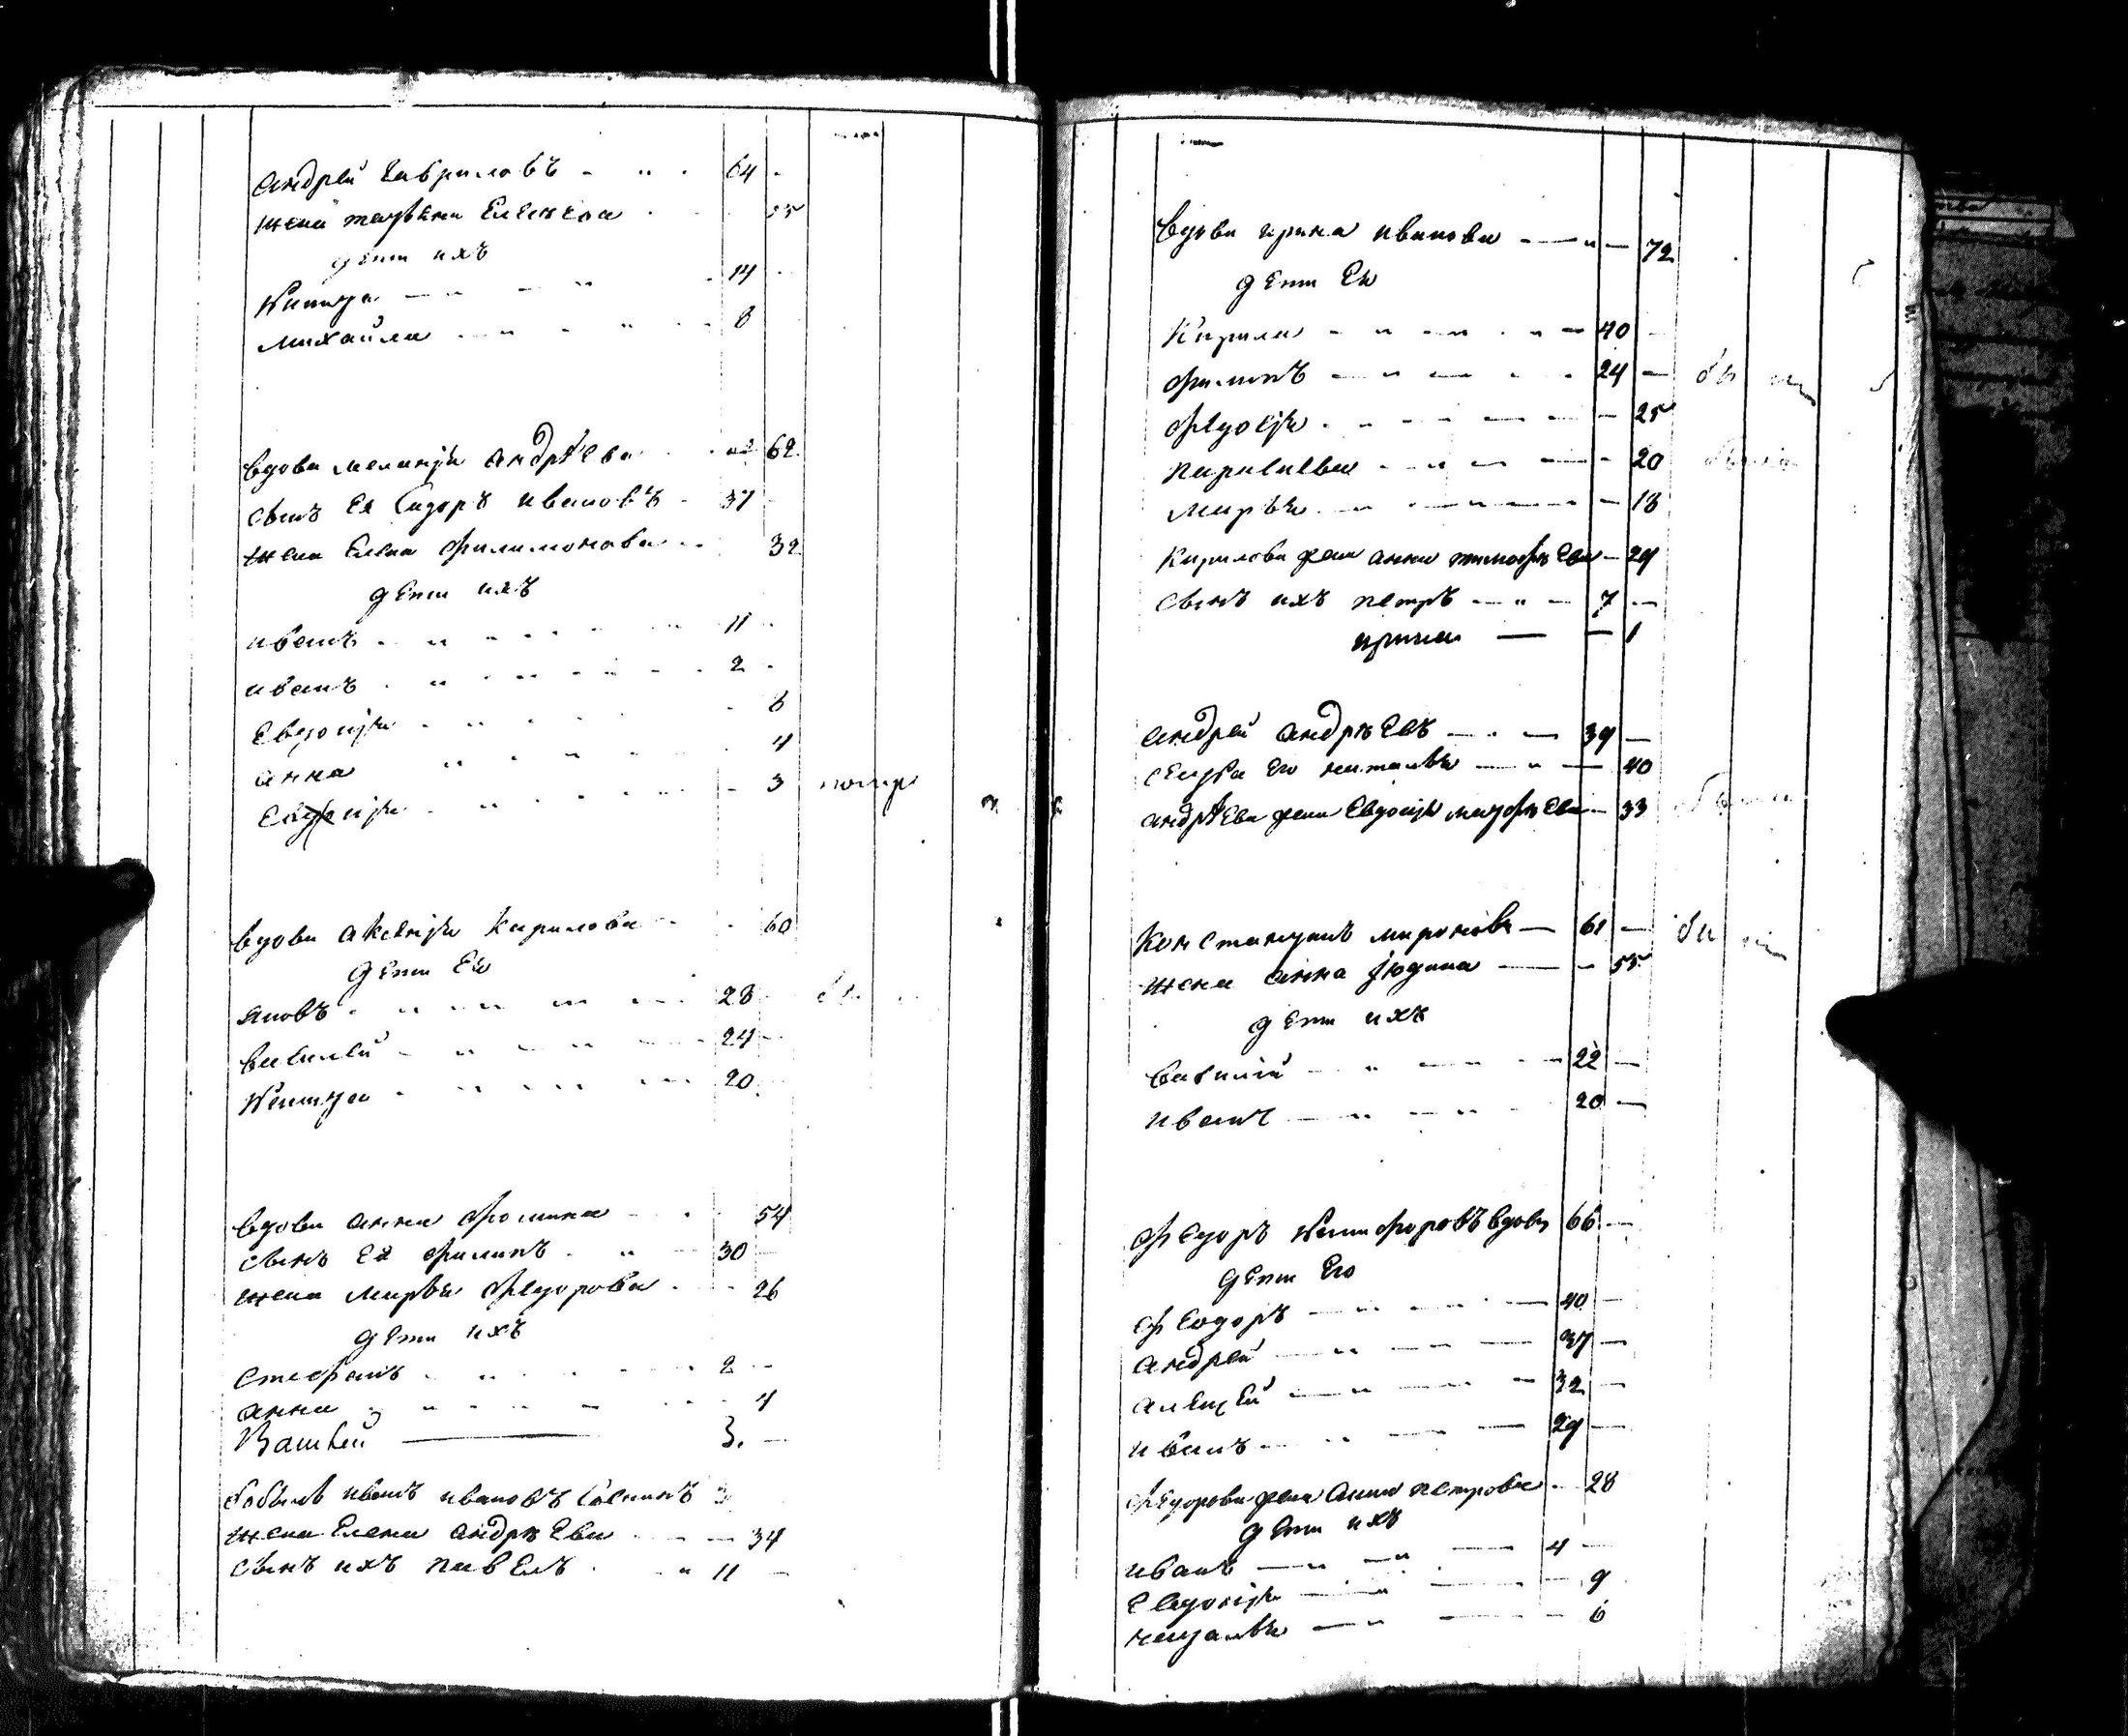 Андрей Гавриловъ 64
жена 55
дети ихъ
Никита 14
Михайла 8
вдова Меланія Андрѣева 62
сынъ Ея Сидоръ Ивановъ 37
жена Елена Филимонова 32
дети ихъ
Иванъ 11
Иванъ 2
Евдокія 8
Анна 4
3 помр
вдова Аксенія Кирилова 60
дети Ея
Яковъ 28
Василей 24
Никита 20
вдова Анна Фомина 54
сынъ Ея Филипъ 30
жена Марья Федорова 26
дети ихъ
Стефанъ 2
Анна 4
3.
бобыль Иванъ Ивановъ
жена Елена Андрѣева 34
сынъ ихъ Павелъ 11
вдова Ирина Иванова 72
дети Ея
Кирила 40
Филипъ 24
Федосія 25
Параскева 20
Марья 18
Кирилова жена Анна Тимофѣева 29
сынъ ихъ Петръ 7
Ирина 1
Андрей Андрѣевъ 39
сестра Его Наталья 40
Андрѣева жена Евдокія 33
Констанцинъ Мироновъ 61
жена Анна Юдина 55
дети ихъ
Василій 22
Иванъ 20
Федоръ Никифоровъ вдовъ 66
дети Его
Феодоръ 40
Андрей 37
Алексѣй 32
Иванъ 29
Федорова жена Анна Петрова 28
дети ихъ
Иванъ 4
Евдокія 9
Наталья 6